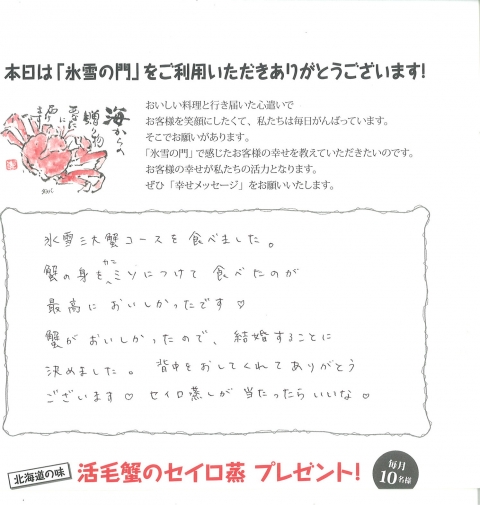 本日は「氷雪の門」をご利用いただきありがとうございます!
海からの
贈り物
おいしい料理と行き届いた心遣いで
お客様を笑顔にしたくて、私たちは毎日がんばっています。
そこでお願いがあります。
「氷雪の門」で感じたお客様の幸せを教えていただきたいのです。
お客様の幸せが私たちの活力となります。
ぜひ「幸せメッセージ」をお願いいたします。
氷雪三大蟹コースを食べました。
蟹の身をカニミソにつけて食べたのが
最高においしかったです♡
蟹がおいしかったので、結婚することに
決めました。背中をおしてくれてありがとう
ございます♡ セイロ蒸しが当たったらいいな♡
北海道の味
活毛蟹のセイロ蒸 プレゼント!
毎月
10名様